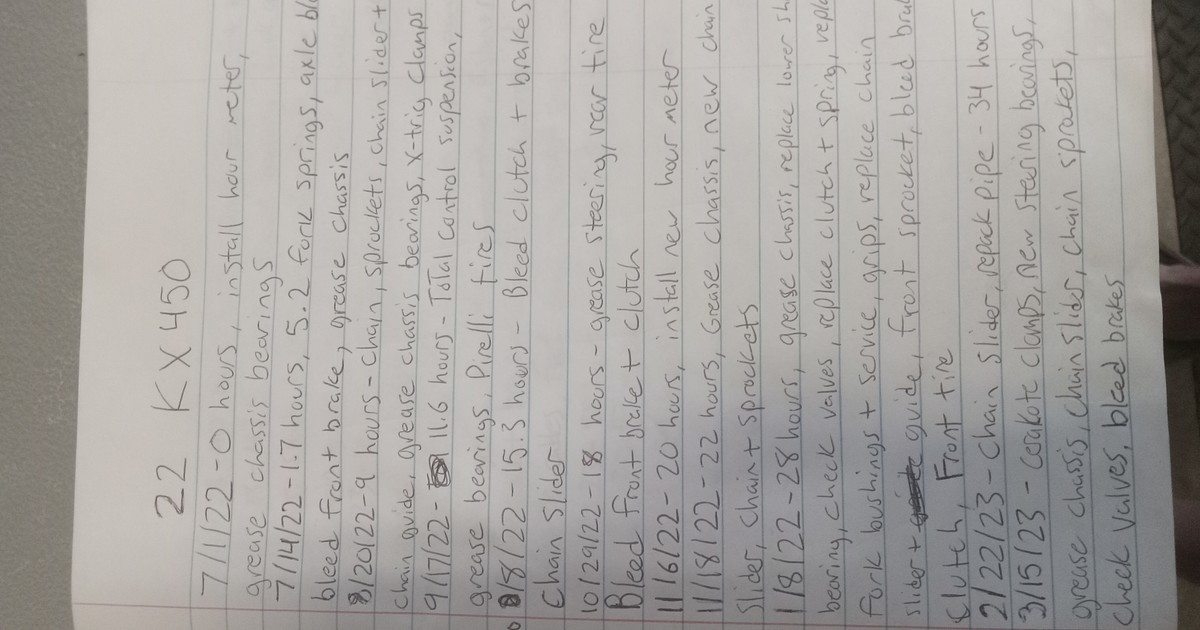 22 KX 450
7/1/22 - 0 hours, install hour meter,
grease chassis bearings
7/14/22 - 1.7 hours, 5.2 fork springs, axle
bleed front brake, grease chassis
8/20/22 - 9 hours - chain, sprockets, chain slider +
chain guide, grease chassis bearings, x-trig clamps
9/17/22 - 11.6 hours - Total control suspension,
grease bearings, Pirelli tires
10/8/22 - 15.3 hours - Bleed clutch + brakes
Chain slider
10/29/22 - 18 hours - grease steering, rear tire
Bleed front brake + clutch
11/6/22 - 20 hours, install new hour meter
11/18/22 - 22 hours, Grease chassis, new chain
slider, chain + sprockets
1/8/22 - 28 hours, grease chassis, replace lower
bearing, check valves, replace clutch + spring,
fork bushings + service, grips, replace chain
slider + guide, front sprocket, bleed
Clutch, Front tire
2/22/23 - Chain slider, repack pipe - 34 hours
3/15/23 - Cerakote clamps, new steering bearings,
grease chassis, chain slider, chain sprakets,
check valves, bleed brakes